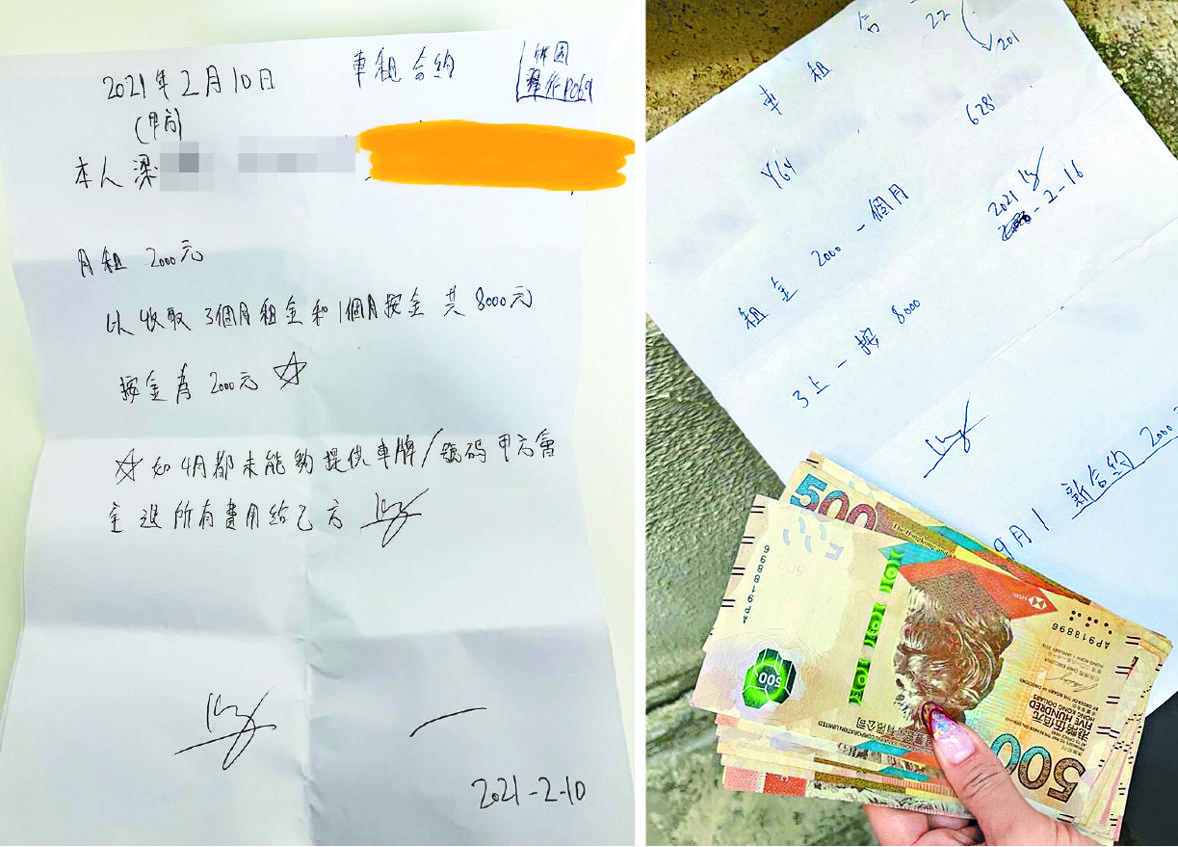 2021年2月10日
車租合約
(甲方)
本人梁
月租 2000元
以收取 3個月租金和1個月按金 共 8000元
按金為 2000元 ☆
☆ 如4月都未能夠提供車牌/號码 甲方會
全退所有費用給乙方
2021-2-10
車租合
22
201
Y64
628
租金 2000 一個月
2021
-2-16
3上一按 8000
9月1 新合約 2000
500
The Hongkong and
AP918896
HSBC
AP918896
500
FIVE HUNDRED
港幣伍佰元
500